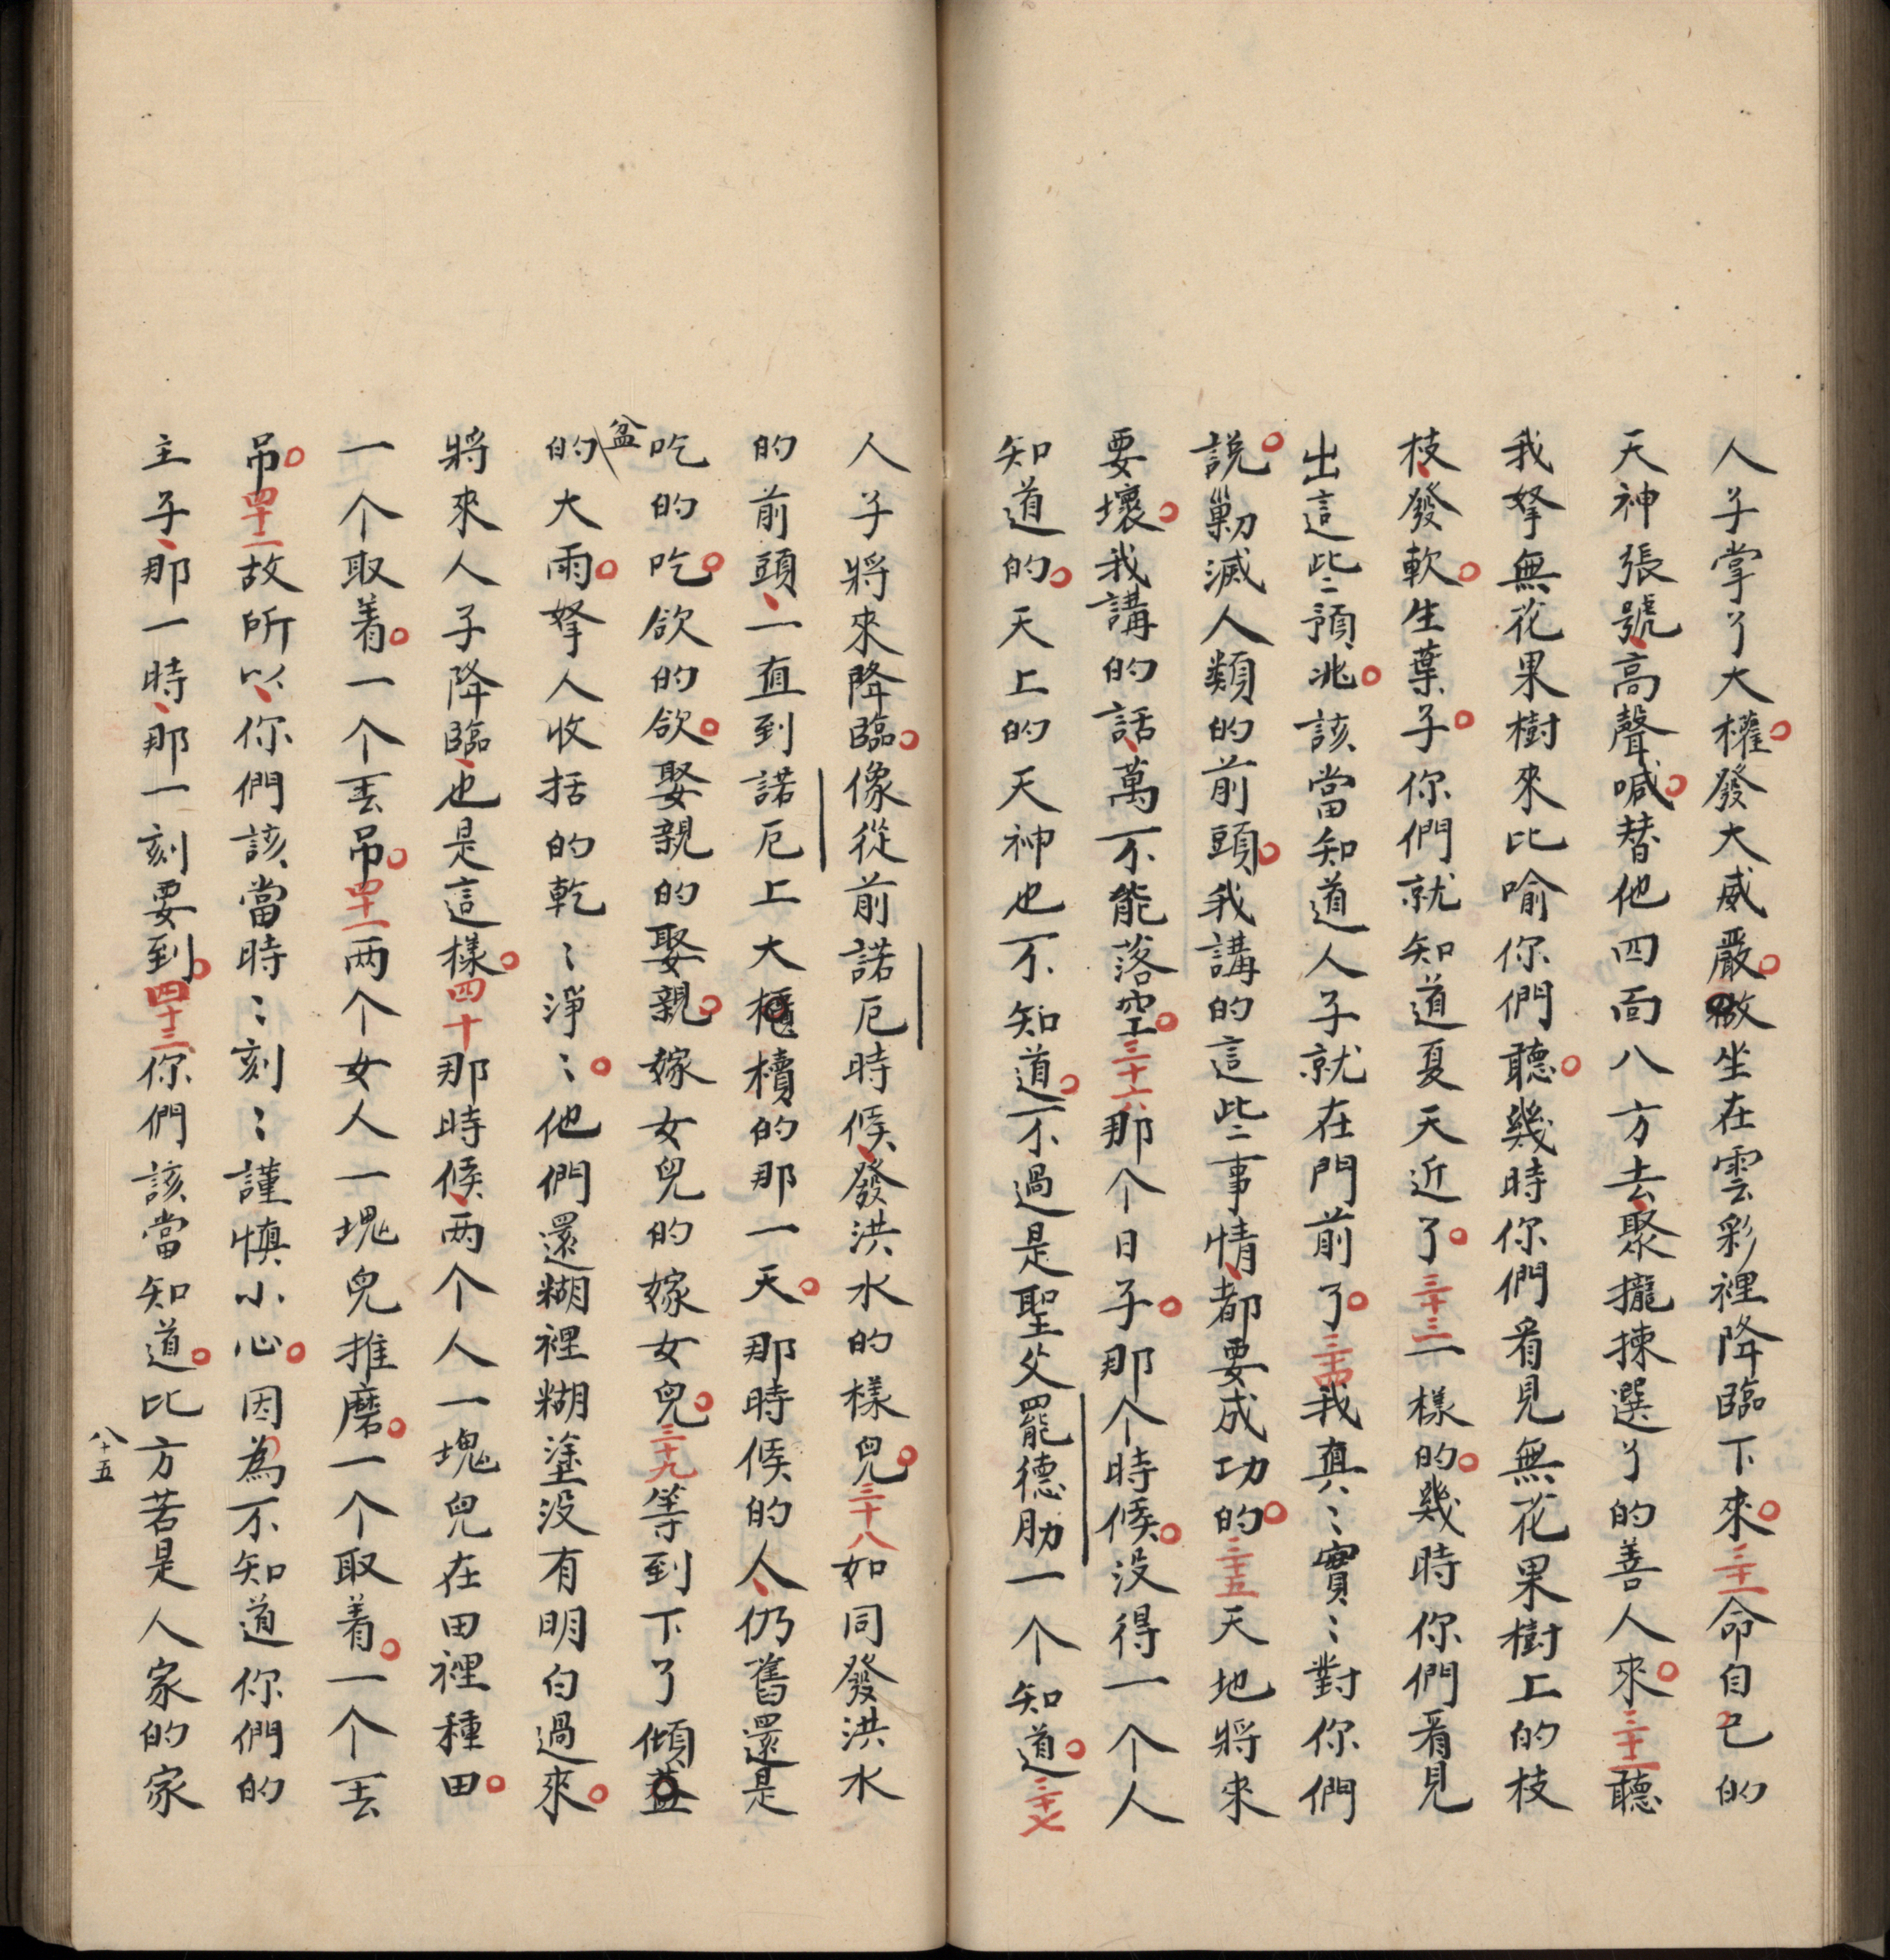 人子掌了大權。發大威嚴。做坐在雲彩裡降臨下來。三十一命自己的
天神張號、高聲喊。替他四面八方去、聚攏揀選了的善人來。三十二聽
我拏無花果樹來比喻你們聽。幾時你們看見無花果樹上的枝
枝、發軟。生葉子。你們就知道夏天近了。三十三一樣的。幾時你們看見
出這些預兆。該當知道人子就在門前了。三十四我真〻實〻對你們
說。剿滅人類的前頭。我講的這些事情、都要成功的。三十五天地將來
要壞。我講的話、萬不能落空。三十六那个日子。那个時候。没得一个人
知道的。天上的天神也不知道。不過是聖父罷德肋一个知道。三十七
人子將來降臨。像從前諾厄時候、發洪水的樣兒。三十八如同發洪水
的前頭、一直到諾厄上大櫃櫝的那一天。那時候的人、仍舊還是
吃的吃。欲的欲。娶親的娶親。嫁女兒的嫁女兒。三十九等到下了傾盆
的大雨。拏人收括的乾〻淨〻。他們還糊裡糊塗没有明白過來。
將來人子降臨、也是這樣。四十那時候、两个人一塊兒在田裡種田。
一个取着。一个丟吊。四十一两个女人一塊兒推磨。一个取着。一个丟
吊。四十二故所以、你們該當時〻刻〻謹慎小心。因為不知道你們的
主子、那一時、那一刻要到。四十三你們該當知道。比方若是人家的家
八十五